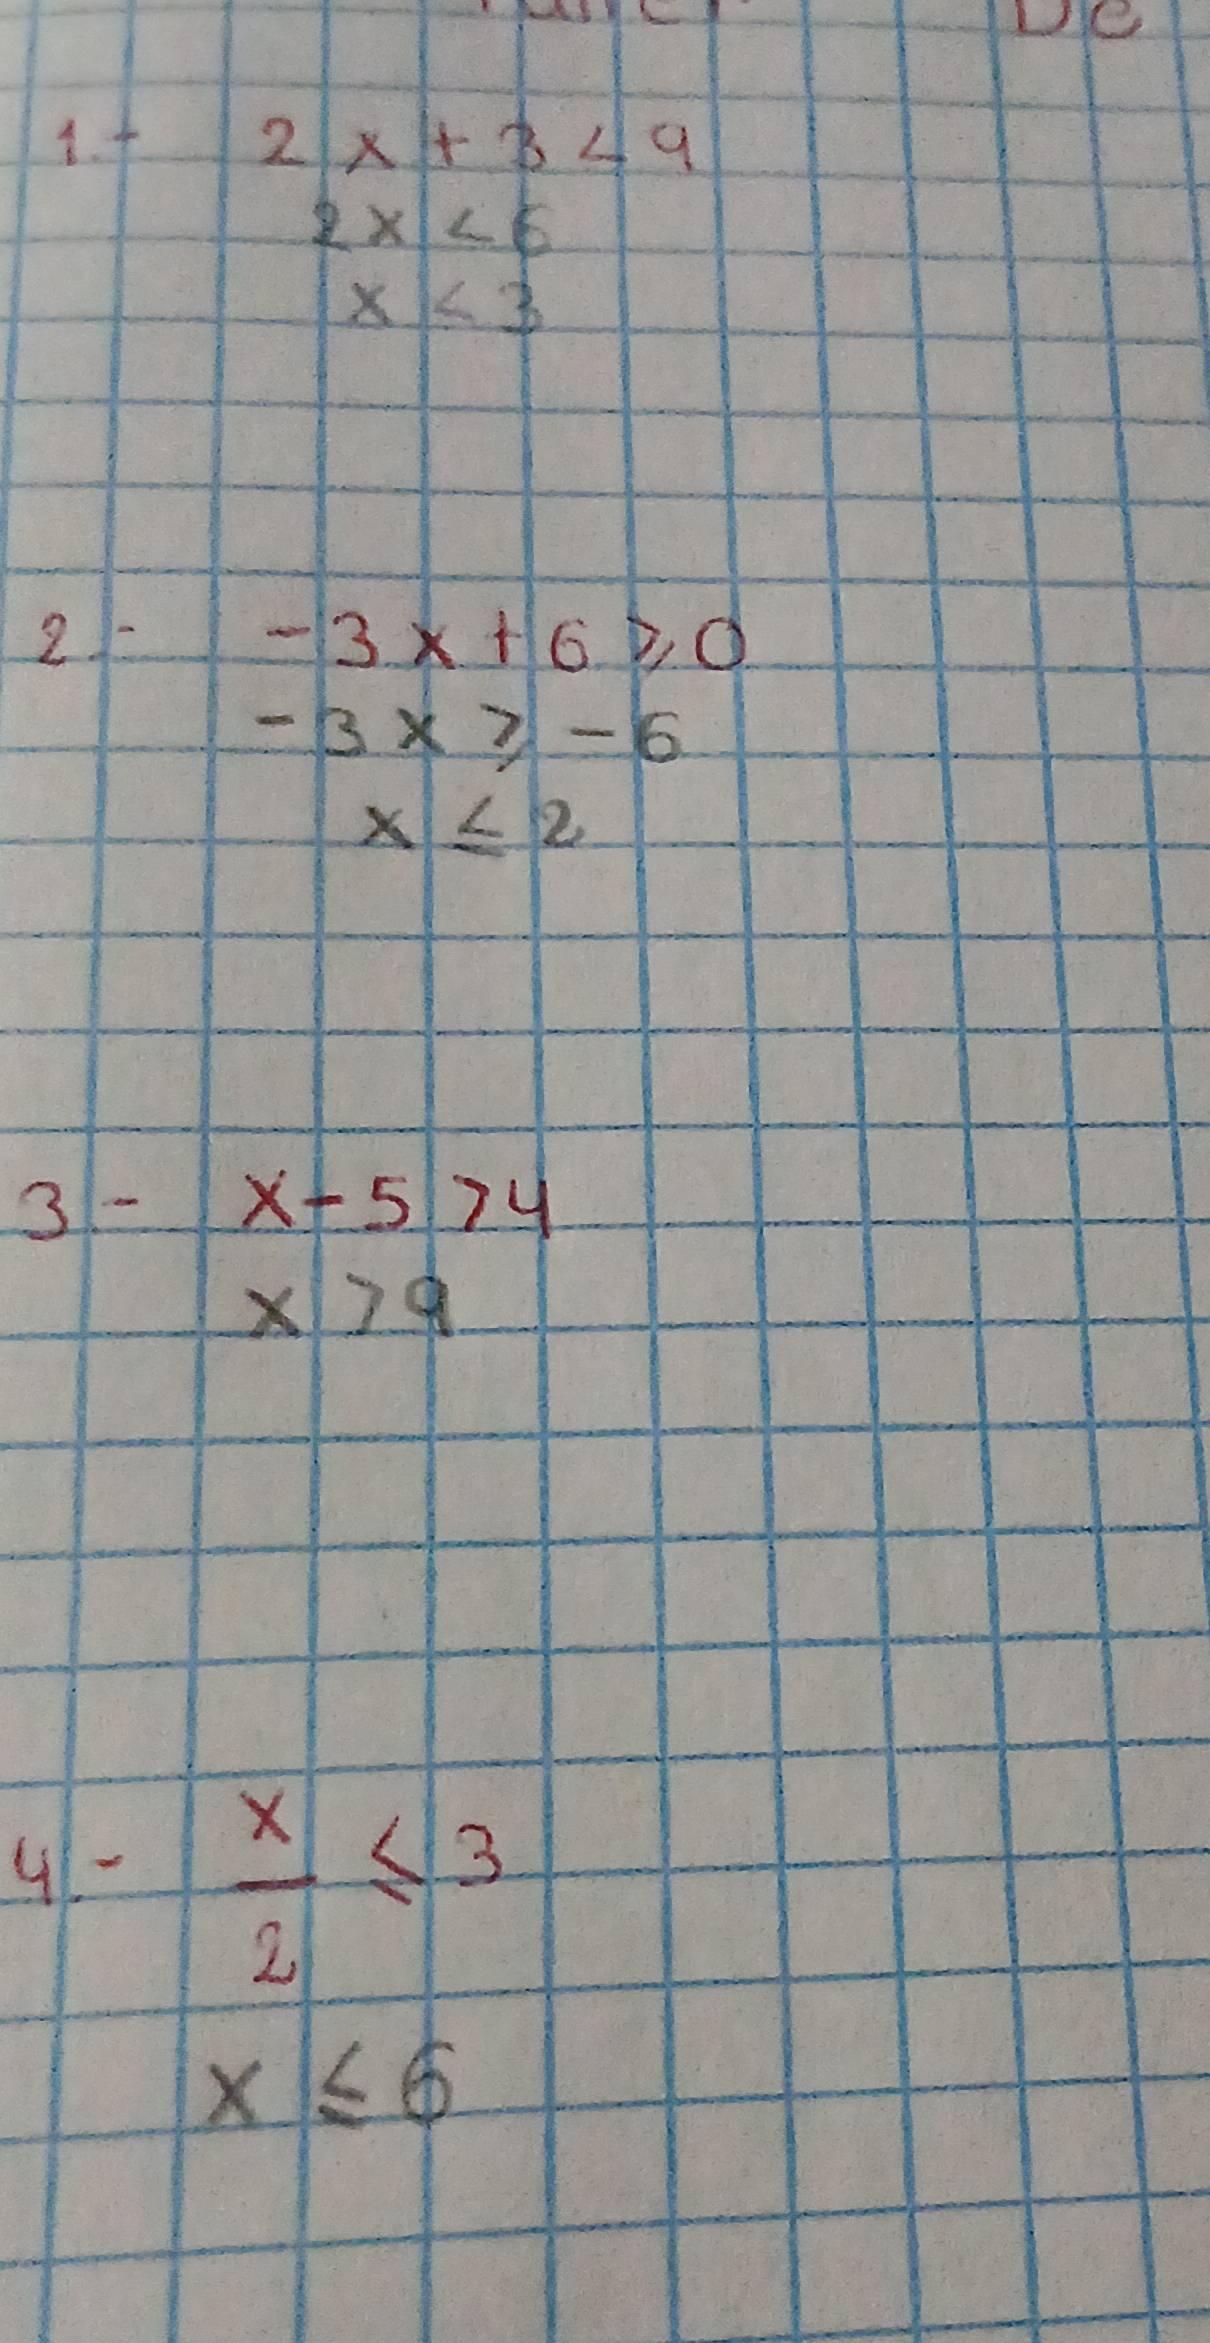 De
1.- 2x + 3 < 9
2x < 6
x < 3
2.- -3x + 6 ≥ 0
-3x ≥ -6
x ≤ 2
3.- x - 5 > 4
x > 9
4.- x/2 ≤ 3
x ≤ 6